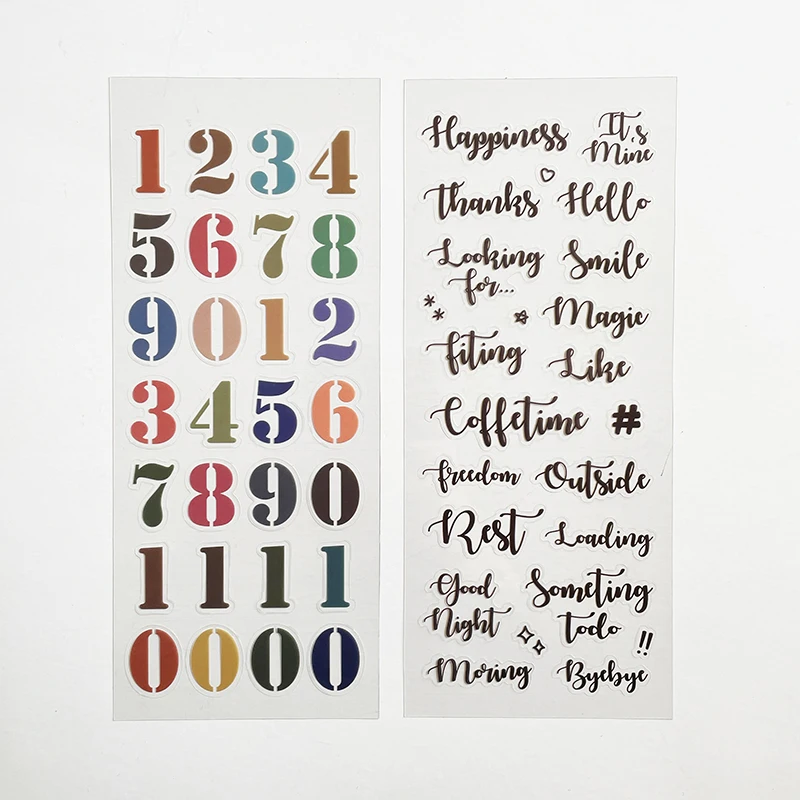 1 2 3 4
5 6 7 8
9 0 1 2
3 4 5 6
7 8 9 0
1 1 1 1
0 0 0 0
Happiness
It's
Mine
Thanks
Hello
Looking
for...
Smile
Magic
fiting
Like
Coffetime
#
freedom
Outside
Rest
Loading
Good
Night
Someting
todo
!!
Moring
Byebye